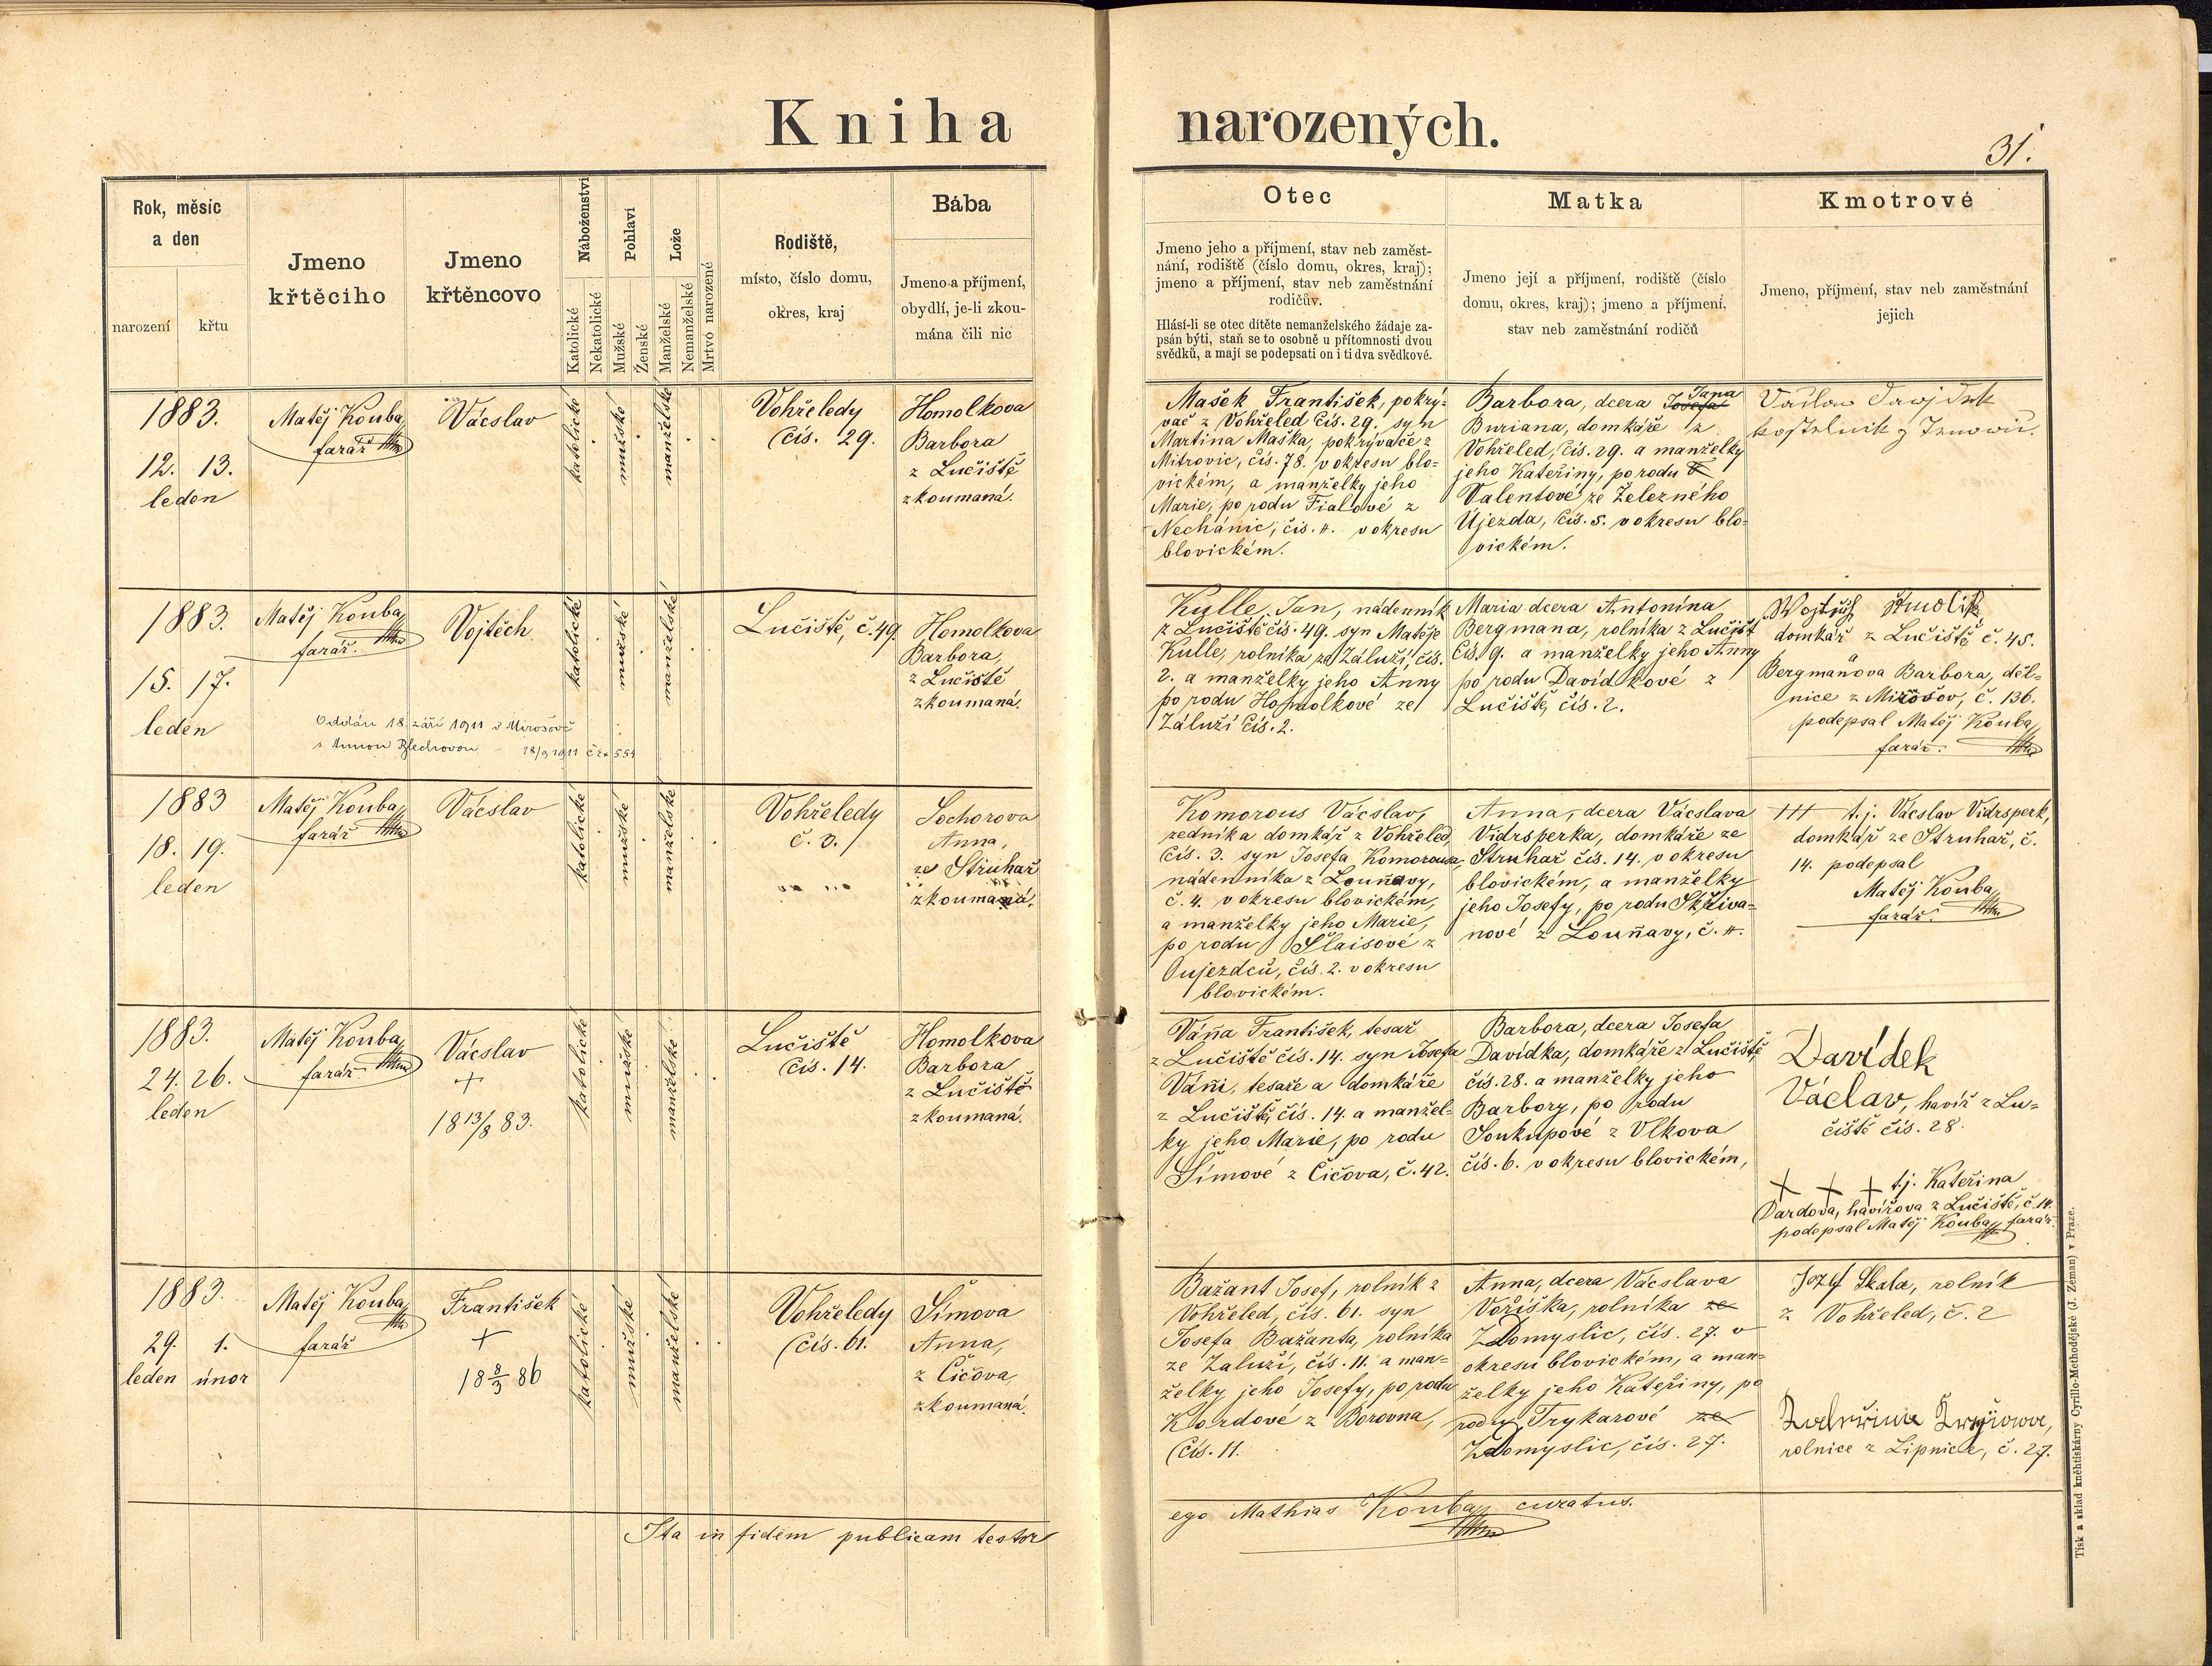 Kniha narozených.
31.
Rok, měsíc
a den
narození
křtu
Jmeno
křtěcího
Jmeno
křtěncovo
Náboženství
Katolické
Nekatolické
Pohlaví
Mužské
Ženské
Lože
Manželské
Nemanželské
Mrtvo narozené
Rodiště,
místo, číslo domu,
okres, kraj
Bába
Jmeno a příjmení,
obydlí, je-li zkou-
mána čili nic
Otec
Jmeno jeho a příjmení, stav neb zaměst-
nání, rodiště (číslo domu, okres, kraj);
jmeno a příjmení, stav neb zaměstnání
rodičův.
Hlásí-li se otec dítěte nemanželského žádaje za-
psán býti, staň se to osobně u přítomnosti dvou
svědků, a mají se podepsati on i ti dva svědkové.
Matka
Jmeno její a příjmení, rodiště (číslo
domu, okres, kraj); jmeno a příjmení,
stav neb zaměstnání rodičů
Kmotrové
Jmeno, příjmení, stav neb zaměstnání
jejich
1883.
12. 13.
leden
Matěj Kouba,
farář
Vácslav
katolické
mužské
manželské
Vohřeledy
čís. 29.
Homolkova
Barbora
z Lučiště
zkoumaná.
Mašek František, pokrý-
vač z Vohřeled čís. 29. syn
Martina Maška, pokrývače z
Mitrovic, čís. 78. v okresu blo-
vickém, a manželky jeho
Marie, po rodu Fialové z
Nechánic, čís. 4. v okresu
blovickém.
Barbora, dcera Josefa Jana
Buriana, domkáře z
Vohřeled, čís. 29. a manželky
jeho Kateřiny, po rodu
Valentové ze Železného
Újezda, čís. 5. v okresu blo-
vickém.
1883.
15. 17.
leden
Matěj Kouba,
farář.
Vojtěch
katolické
mužské
manželské
Lučiště, č. 49.
Homolkova
Barbora,
z Lučiště
zkoumaná.
Oddán 18. září 1911 v Mirošově
s Annou Blechovou - 18/9 1911 č. ex 554
Kulle Jan, nádenník
z Lučiště čís. 49. syn Matěje
Kulle, rolníka ze Záluží, čís.
2. a manželky jeho Anny
po rodu Homolkové ze
Záluží čís. 2.
Maria dcera Antonína
Bergmana, rolníka z Lučišť
čís. 9. a manželky jeho Anny
po rodu Davidkové z
Lučiště, čís. 2.
domkář z Lučiště č. 45.
Bergmanova Barbora, děl-
nice z Mirošov, č. 136.
podepsal Matěj Kouba,
farář.
1883
18. 19.
leden
Matěj Kouba,
farář
Vácslav
katolické
mužské
manželské
Vohřeledy
č. 3.
Sochorova
Anna,
ze Struhař
zkoumaná.
Komorous Vácslav,
zedníka domkář z Vohřeled,
čís. 3. syn Josefa Komorousa,
nádenníka z Louňavy,
č. 4. v okresu blovickém,
a manželky jeho Marie,
po rodu Šlaisové z
Oujezdců, čís. 2. v okresu
blovickém.
Anna, dcera Vácslava
Vidrsperka, domkáře ze
Struhař čís. 14. v okresu
blovickém, a manželky
jeho Josefy, po rodu Skřiva-
nové z Louňavy, č. 4.
+++ t. j. Vácslav Vidrsperk,
domkář ze Struhař, č.
14. podepsal
Matěj Kouba,
farář.
1883.
24. 26.
leden
Matěj Kouba,
farář.
Vácslav
+
18 13/8 83.
katolické
mužské
manželské
Lučiště
čís. 14.
Homolkova
Barbora
z Lučiště
zkoumaná.
Váňa František, tesař
z Lučiště čís. 14. syn Josefa
Váni, tesaře a domkáře
z Lučiště, čís. 14. a manžel-
ky jeho Marie, po rodu
Šímové z Čičova, č. 42.
Barbora, dcera Josefa
Davídka, domkáře z Lučiště
čís. 28. a manželky jeho
Barbory, po rodu
Soukupové z Vlkova
čís. 6. v okresu blovickém,
Davídek
Václav, havíř z Lu-
čiště čís. 28.
+ + + t.j. Kateřina
Dardova, havířova z Lučiště, č. 14.
podepsal Matěj Kouba, farář.
1883.
29. 1.
leden únor
Matěj Kouba,
farář
František
+
18 8/3 86
katolické
mužské
manželské
Vohřeledy
čís. 61.
Šímova
Anna,
z Čičova,
zkoumaná.
Bažant Josef, rolník z
Vohřeled, čís. 61. syn
Josefa Bažanta, rolníka
ze Záluží, čís. 11. a man-
želky jeho Josefy, po rodu
Kordové z Borovna,
čís. 11.
Anna, dcera Vácslava
Voříška, rolníka ze
Zdomyslic, čís. 27. v
okresu blovickém, a man-
želky jeho Kateřiny, po
rodu Trykarové ze
Zdomyslic, čís. 27.
Jozef Skala, rolník
z Vohřeled, č. 2
rolnice z Lipnice, č. 27.
Ita in fidem publicam testor
ego Mathias Kouba, curatus.
Tisk a sklad kněhtiskárny Cyrillo-Methodějské (J. Zeman) v Praze.